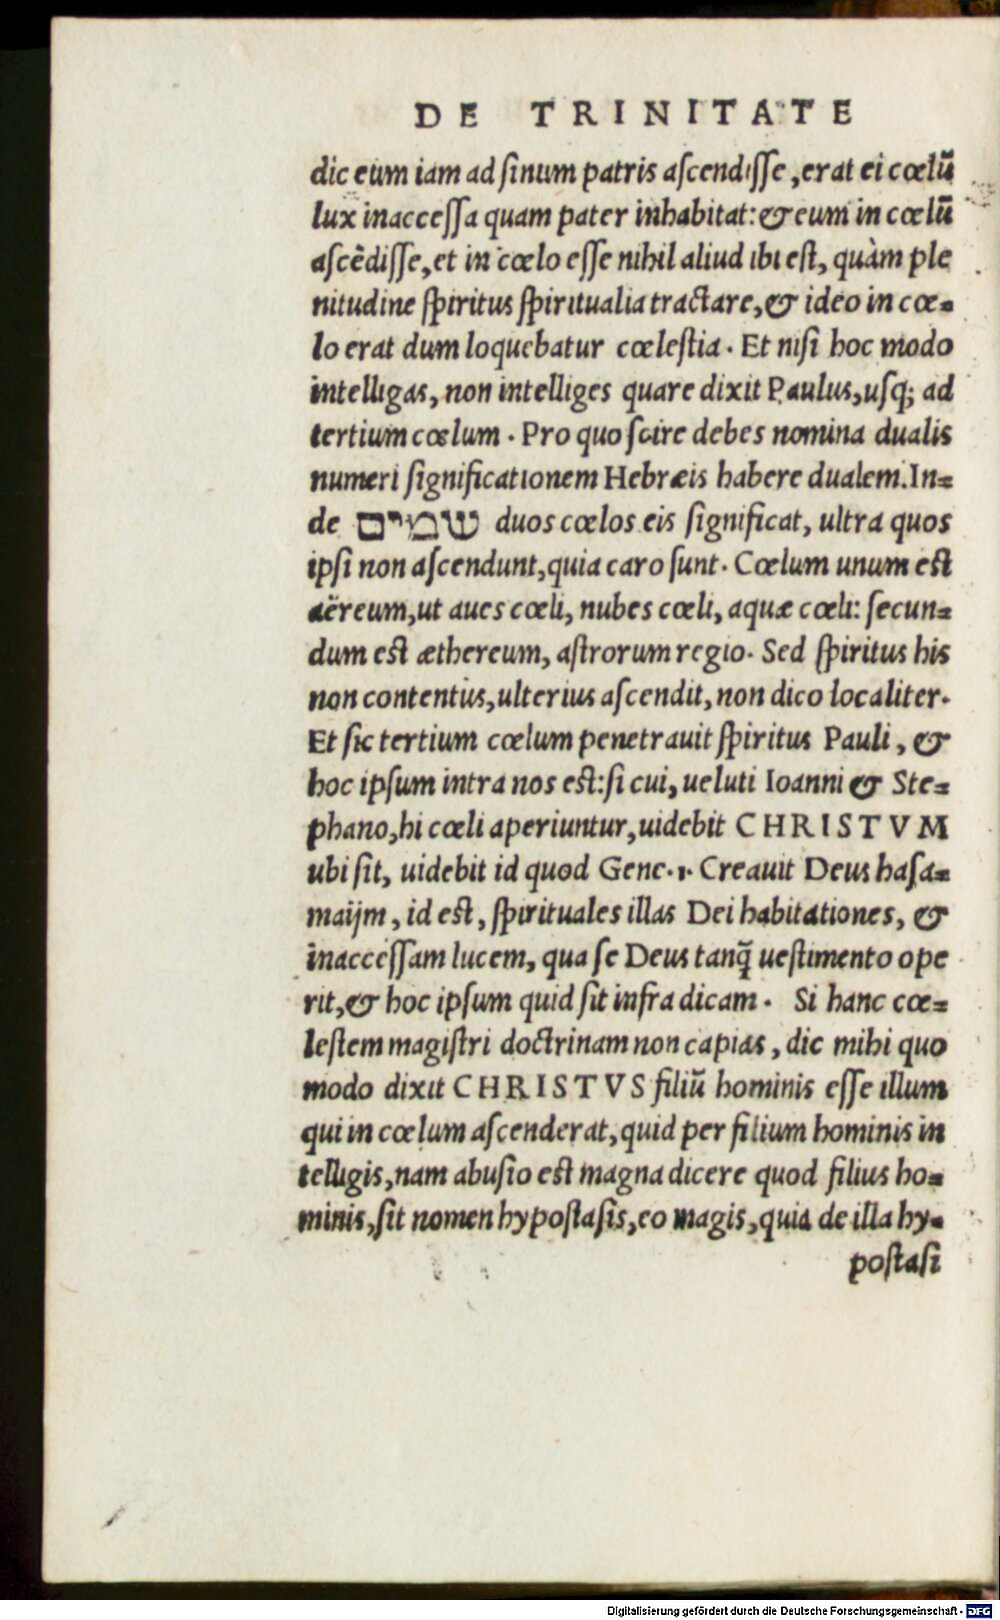 DE TRINITATE
dic eum iam ad ſinum patris aſcendiſſe, erat ei cœlū
lux inacceſſa quam pater inhabitat: & eum in cœlū
aſcēdiſſe, et in cœlo eſſe nihil aliud ibi eſt, quàm ple
nitudine ſpiritus ſpiritualia tractare, & ideo in cœ-
lo erat dum loquebatur cœleſtia. Et niſi hoc modo
intelligas, non intelliges quare dixit Paulus, uſq; ad
tertium cœlum. Pro quo ſcire debes nomina dualis
numeri ſignificationem Hebræis habere dualem. In-
de שמים duos cœlos eis ſignificat, ultra quos
ipſi non aſcendunt, quia caro ſunt. Cœlum unum eſt
aëreum, ut aues cœli, nubes cœli, aquæ cœli: ſecun-
dum eſt æthereum, aſtrorum regio. Sed ſpiritus his
non contentus, ulterius aſcendit, non dico localiter.
Et ſic tertium cœlum penetrauit ſpiritus Pauli, &
hoc ipſum intra nos eſt: ſi cui, ueluti Ioanni & Ste-
phano, hi cœli aperiuntur, uidebit CHRISTVM
ubi ſit, uidebit id quod Gene. 1. Creauit Deus haſa-
maijm, id eſt, ſpirituales illas Dei habitationes, &
inacceſſam lucem, qua ſe Deus tanq̃ ueſtimento ope
rit, & hoc ipſum quid ſit infra dicam. Si hanc cœ-
leſtem magiſtri doctrinam non capias, dic mihi quo
modo dixit CHRISTVS filiū hominis eſſe illum
qui in cœlum aſcenderat, quid per filium hominis in
telligis, nam abuſio eſt magna dicere quod filius ho-
minis, ſit nomen hypoſtaſis, eo magis, quia de illa hy-
poſtaſi
Digitalisierung gefördert durch die Deutsche Forschungsgemeinschaft - DFG